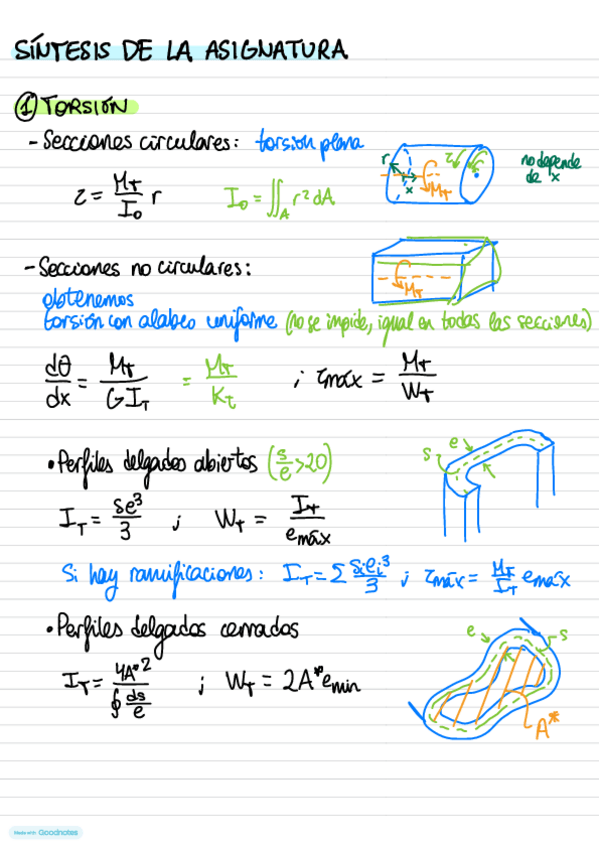 SÍNTESIS DE LA ASIGNATURA
① TORSIÓN
- Secciones circulares: torsión plana
τ = M_T/I_0 r    I_0 = ∬_A r² dA
r x τ M_T
no depende de x
- Secciones no circulares:
M_T
obtenemos
torsión con alabeo uniforme (no se impide, igual en todas las secciones)
dθ/dx = M_T/(G I_T) = M_T/K_t ; τmáx = M_T/W_T
• Perfiles delgados abiertos (s/e > 20)
s e
I_T = se³/3 ; W_T = I_T/e_máx
Si hay ramificaciones: I_T = Σ s_i e_i³/3 ; τmáx = M_T/I_T e_máx
• Perfiles delgados cerrados
I_T = 4A*²/∮ ds/e ; W_T = 2A* e_min
e s
A*
Made with Goodnotes